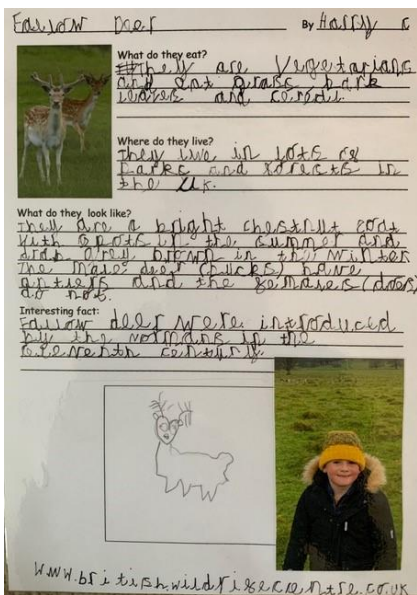 Fallow Deer By Harry c
What do they eat?
They are vegetarians
and eat grass bark
leaves and
Where do they live?
They live in lots of
Parks and forests in
the UK.
What do they look like?
They are a bright chestnut coat
with spots in the summer and
drab Grey brown in the winter
The male deer (bucks) have
antlers and the females (does)
do not.
Interesting fact:
Fallow deer were introduced
by the Normans in the
Eleventh century.
www.britishwildlifecentre.co.uk